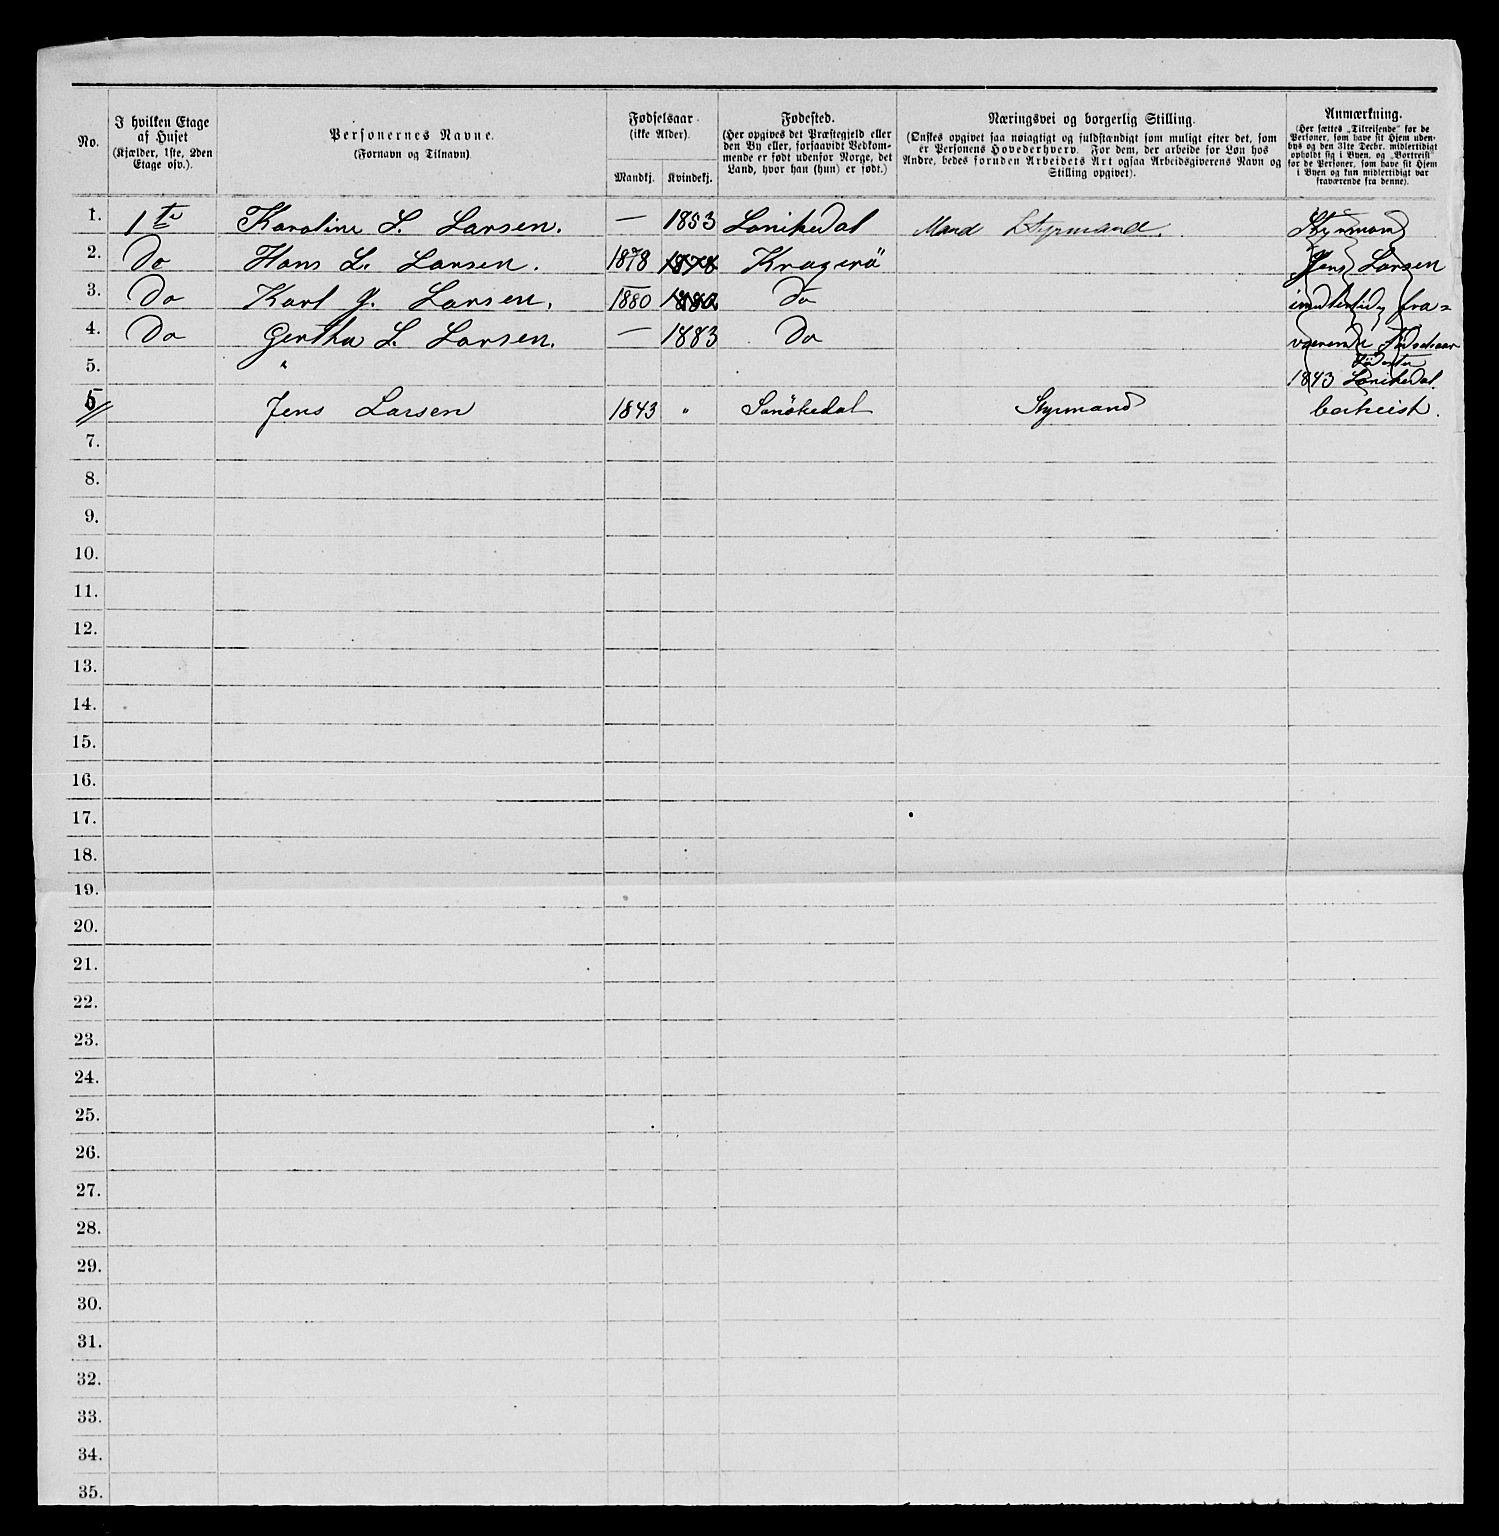 No.
I hvilken Etage
af Huset
(Kjælder, 1ste, 2den
Etage osv.).
Personernes Navne.
(Fornavn og Tilnavn).
Fødselsaar.
(ikke Alder).
Mandkj. Kvindekj.
Fødested.
(Her opgives det Præstegjeld eller
den By eller, forsaavidt Vedkom-
mende er født udenfor Norge, det
Land, hvor han (hun) er født.)
Næringsvei og borgerlig Stilling.
(Ønskes opgivet saa nøiagtigt og fuldstændigt som muligt efter det, som
er Personens Hovederhverv. For dem, der arbeide for Løn hos
Andre, bedes foruden Arbeidets Art ogsaa Arbeidsgiverens Navn og
Stilling opgivet).
Anmærkning.
(Her sættes „Tilreisende" for de
Personer, som have sit Hjem uden-
bys og den 31te Decbr. midlertidigt
opholdt sig i Byen, og „Bortreist"
for de Personer, som have sit Hjem
i Byen og kun midlertidigt var
fraværende fra denne).
1. 1ste Karoline L. Larsen. — 1853 Sanikedal Mand Styrmand. Styrmand
2. Do Hans L. Larsen. 1878 1878 Kragerö Jens Larsen
3. Do Karl G. Larsen. 1880 1880 Do imidlertidig fra-
4. Do Gertha L. Larsen. — 1883 Do værende Födselsaar
5. " Födested
1843 Sanikedal
5 Jens Larsen 1843 " Sanökedal Styrmand bortreist.
7.
8.
9.
10.
11.
12.
13.
14.
15.
16.
17.
18.
19.
20.
21.
22.
23.
24.
25.
26.
27.
28.
29.
30.
31.
32.
33.
34.
35.